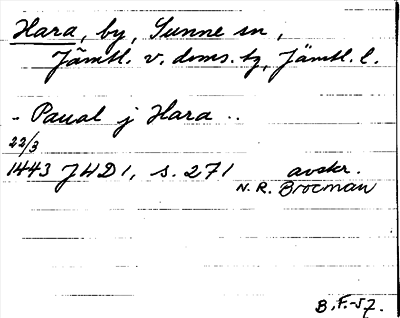 Hara, by, Sunne sn,
Jämtl. v. doms. tg, Jämtl. l.
- Paual j Hara ..
22/3
1443 JHD 1, s. 271 avskr.
N. R. Brocman
B. F. -57.